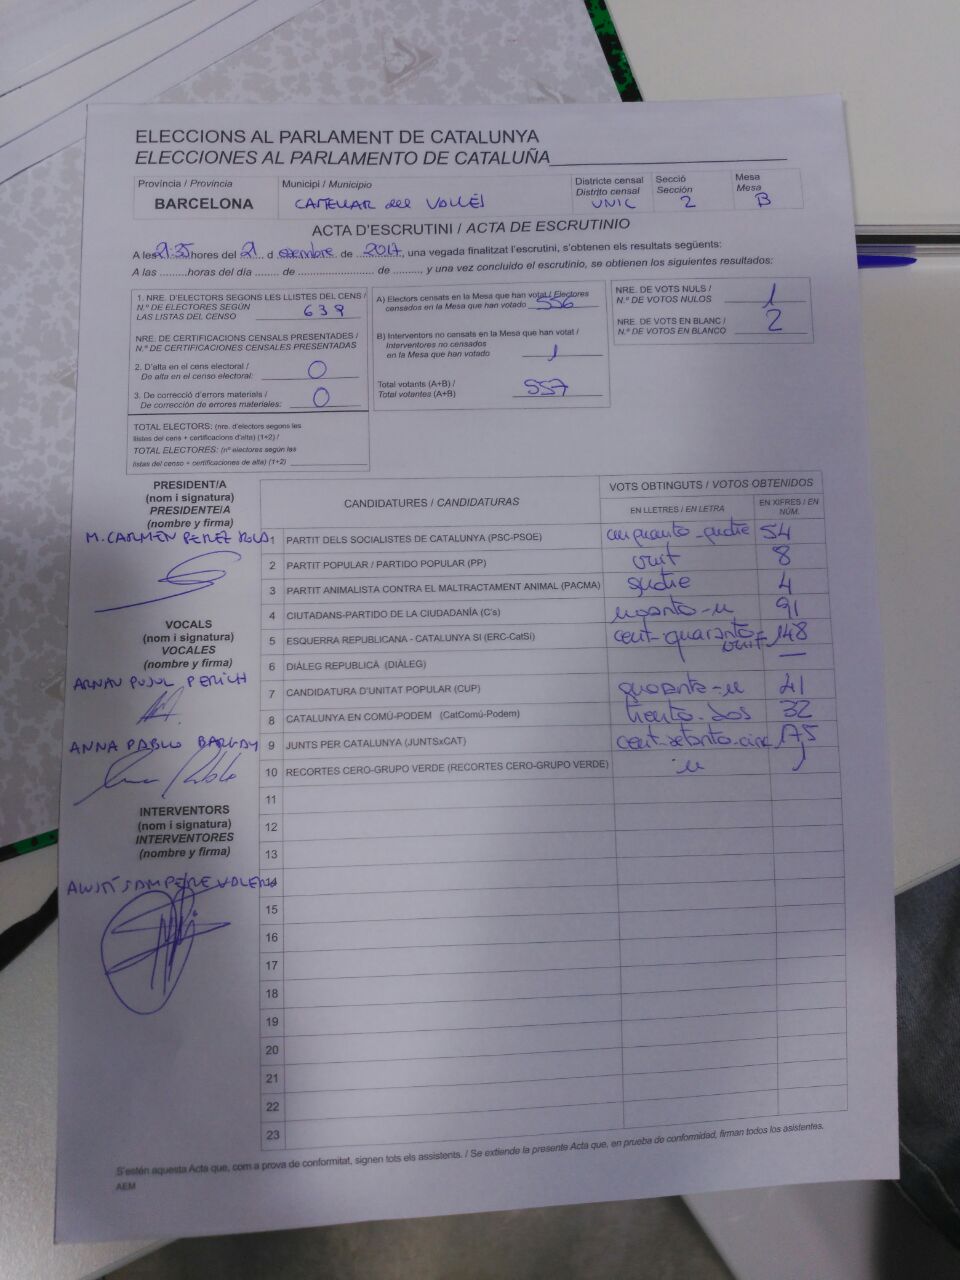 ELECCIONS AL PARLAMENT DE CATALUNYA
ELECCIONES AL PARLAMENTO DE CATALUÑA
Província / Provincia
BARCELONA
Municipi / Municipio
CASTELLAR del VALLÈS
Districte censal
Distrito censal
UNIC
Secció
Sección
2
Mesa
Mesa
B
ACTA D'ESCRUTINI / ACTA DE ESCRUTINIO
A les 21:35 hores del 21 d desembre de 2017, una vegada finalitzat l'escrutini, s'obtenen els resultats següents:
A las .........horas del día ....... de ....................... de ........., y una vez concluido el escrutinio, se obtienen los siguientes resultados:
1. NRE. D'ELECTORS SEGONS LES LLISTES DEL CENS /
N.º DE ELECTORES SEGÚN
LAS LISTAS DEL CENSO 639
NRE. DE CERTIFICACIONS CENSALS PRESENTADES /
N.º DE CERTIFICACIONES CENSALES PRESENTADAS
2. D'alta en el cens electoral /
De alta en el censo electoral: 0
3. De correcció d'errors materials /
De corrección de errores materiales: 0
TOTAL ELECTORS: (nre. d'electors segons les
llistes del cens + certificacions d'alta) (1+2) /
TOTAL ELECTORES: (nº electores según las
listas del censo + certificaciones de alta) (1+2)
A) Electors censats en la Mesa que han votat / Electores
censados en la Mesa que han votado 556
B) Interventors no censats en la Mesa que han votat /
Interventores no censados
en la Mesa que han votado 1
Total votants (A+B) /
Total votantes (A+B) 557
NRE. DE VOTS NULS /
N.º DE VOTOS NULOS 1
NRE. DE VOTS EN BLANC /
N.º DE VOTOS EN BLANCO 2
PRESIDENT/A
(nom i signatura)
PRESIDENTE/A
(nombre y firma)
M. CARMEN PEREZ
VOCALS
(nom i signatura)
VOCALES
(nombre y firma)
ARNAU PUJOL PERICH
ANNA PABLO
INTERVENTORS
(nom i signatura)
INTERVENTORES
(nombre y firma)
CANDIDATURES / CANDIDATURAS
VOTS OBTINGUTS / VOTOS OBTENIDOS
EN LLETRES / EN LETRA
EN XIFRES / EN NÚM.
1 PARTIT DELS SOCIALISTES DE CATALUNYA (PSC-PSOE) cinquanta-quatre 54
2 PARTIT POPULAR / PARTIDO POPULAR (PP) vuit 8
3 PARTIT ANIMALISTA CONTRA EL MALTRACTAMENT ANIMAL (PACMA) quatre 4
4 CIUTADANS-PARTIDO DE LA CIUDADANÍA (C's) noranta-u 91
5 ESQUERRA REPUBLICANA - CATALUNYA SI (ERC-CatSi) cent-quaranta-vuit 148
6 DIÀLEG REPUBLICÀ (DIÀLEG) —
7 CANDIDATURA D'UNITAT POPULAR (CUP) quaranta-u 41
8 CATALUNYA EN COMÚ-PODEM (CatComú-Podem) trenta-dos 32
9 JUNTS PER CATALUNYA (JUNTSxCAT) cent-setanta-cinc 175
10 RECORTES CERO-GRUPO VERDE (RECORTES CERO-GRUPO VERDE) u 1
11
12
13
14
15
16
17
18
19
20
21
22
23
S'estén aquesta Acta que, com a prova de conformitat, signen tots els assistents. / Se extiende la presente Acta que, en prueba de conformidad, firman todos los asistentes.
AEM